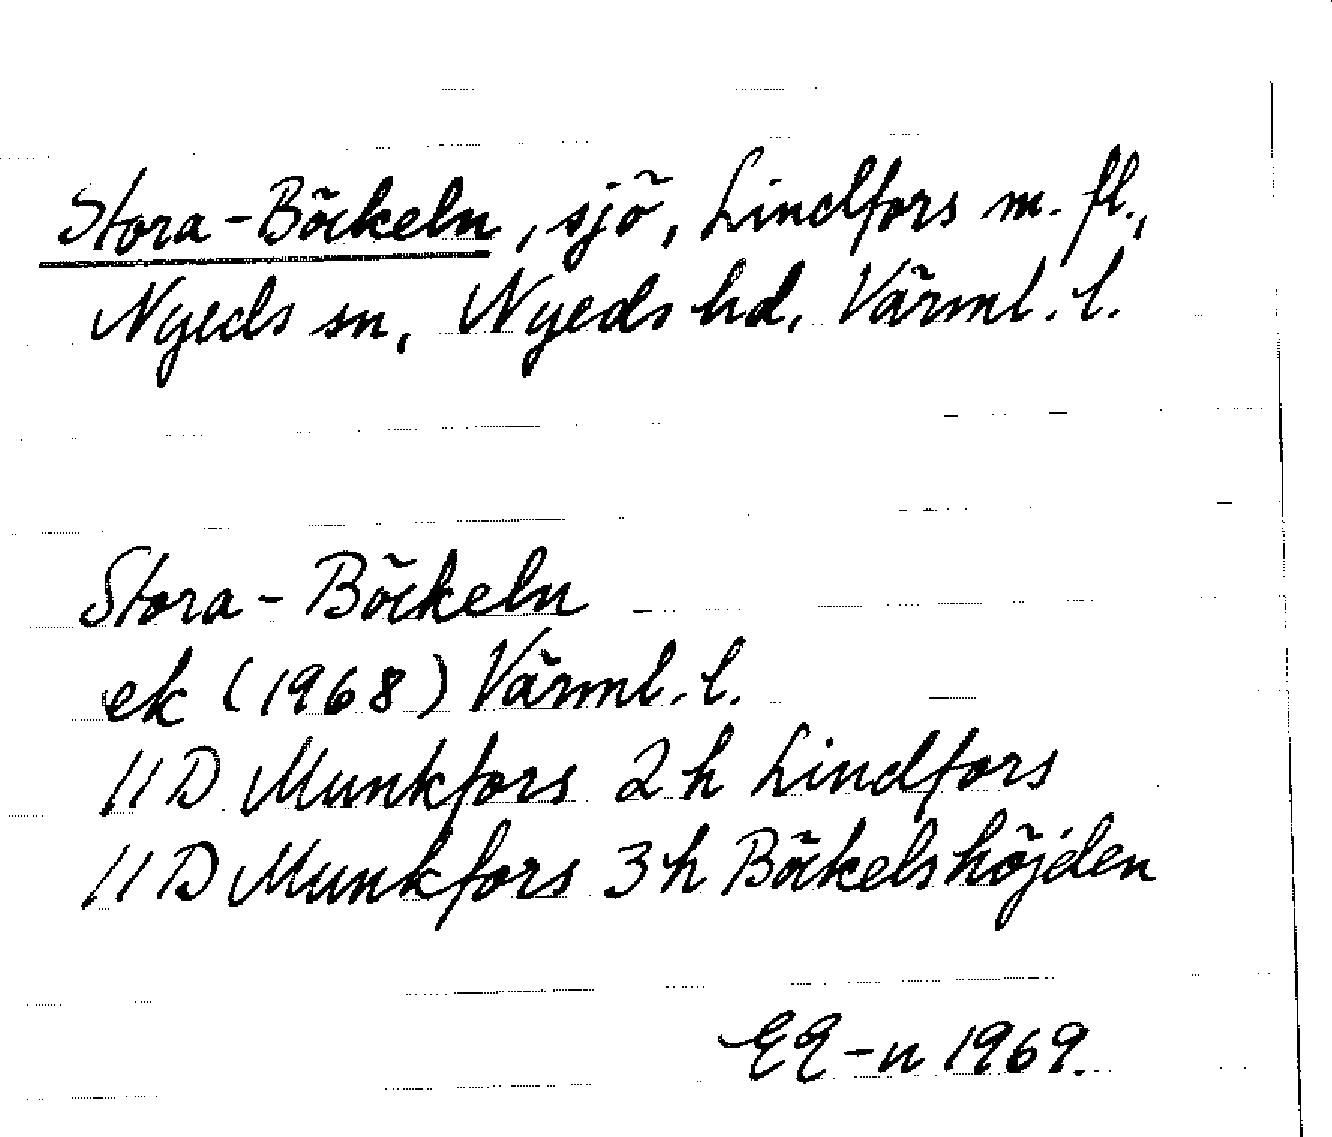 Stora-Böckeln, sjö, Lindfors m. fl.,
Nyeds sn, Nyeds hd, Värml. l.
Stora-Böckeln
ek (1968) Värml. l.
11 D Munkfors 2 h Lindfors
11 D Munkfors 3 h Böckelshöjden
EE-n 1969.